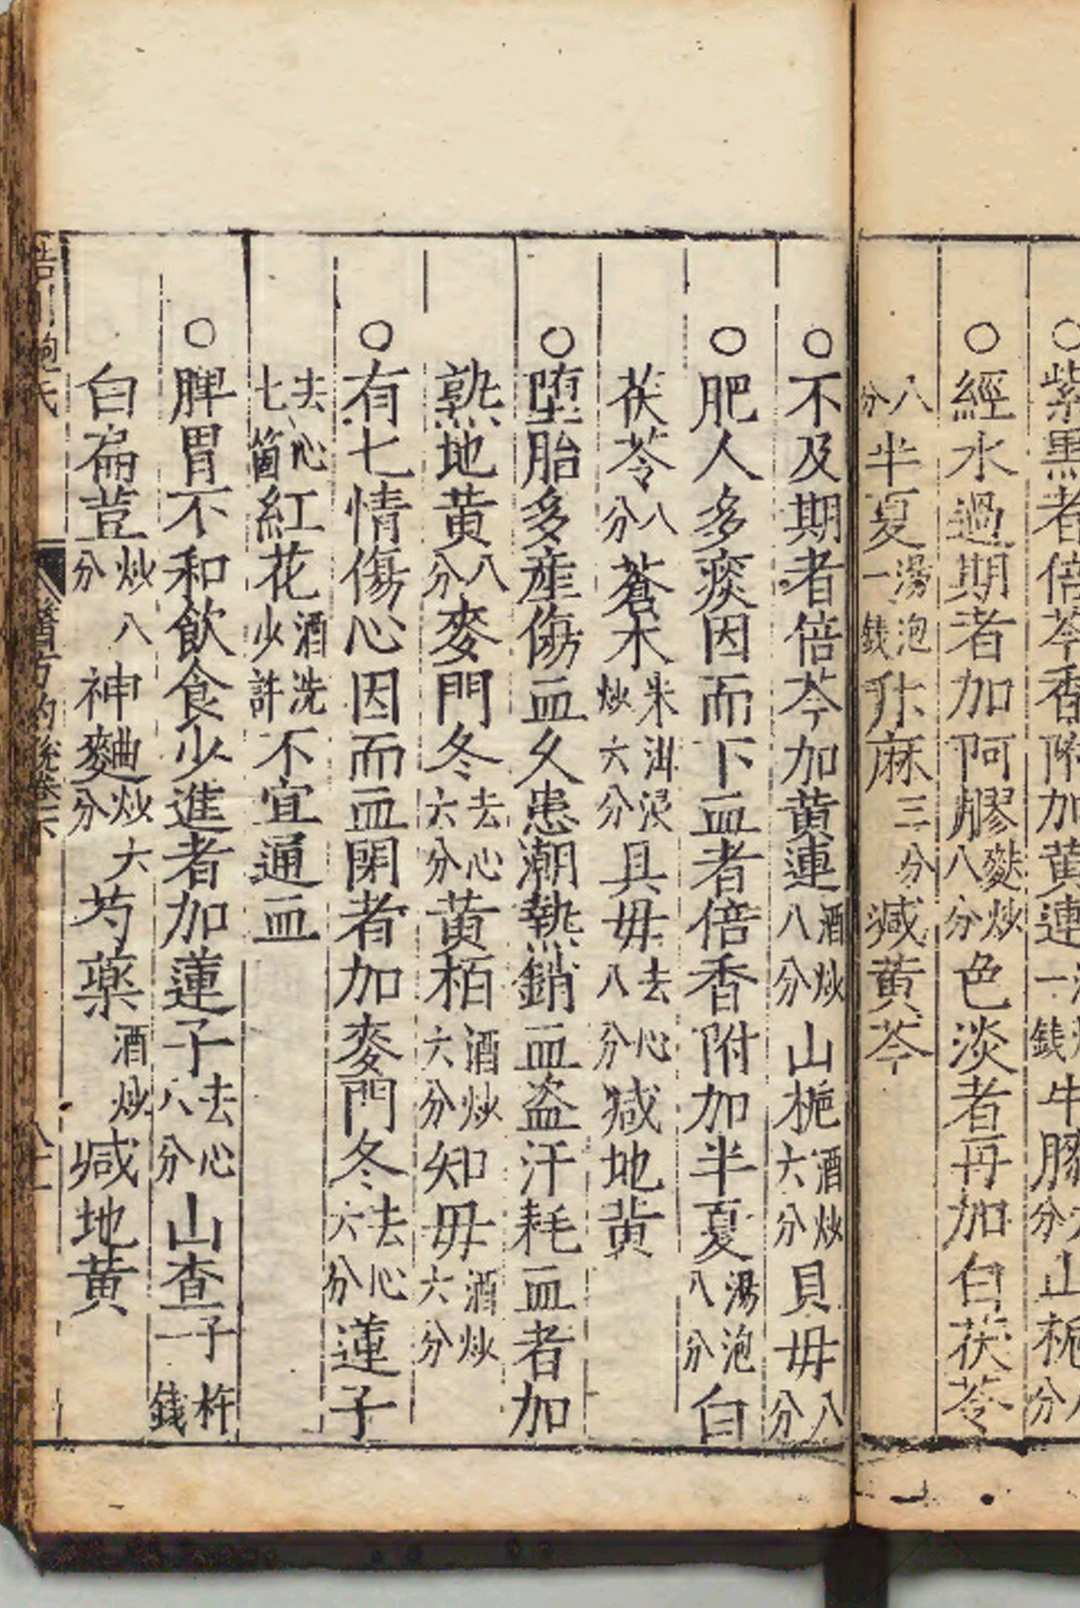 紫黑者倍芩香附加黄連一錢牛膠分山梔分
○經水過期者加阿膠麩炒八分色淡者再加白茯苓
八分半夏湯泡一錢升麻三分減黄芩
○不及期者倍芩加黄連酒炒八分山梔酒炒六分貝毋八分
○肥人多痰因而下血者倍香附加半夏湯泡八分白
茯苓八分蒼木朱泔浸炒六分具毋去心八分減地黄
○墮胎多産傷血久患潮熱銷血盗汗耗血者加
熟地黄八分麥門冬去心六分黄栢酒炒六分知毋酒炒六分
○有七情傷心因而血閉者加麥門冬去心六分蓮子
去心七箇紅花酒洗少許不宜通血
○脾胃不和飲食少進者加蓮子去心八分山查子杵一錢
白扁荳炒八分神麯炒六分芍藥酒炒減地黄